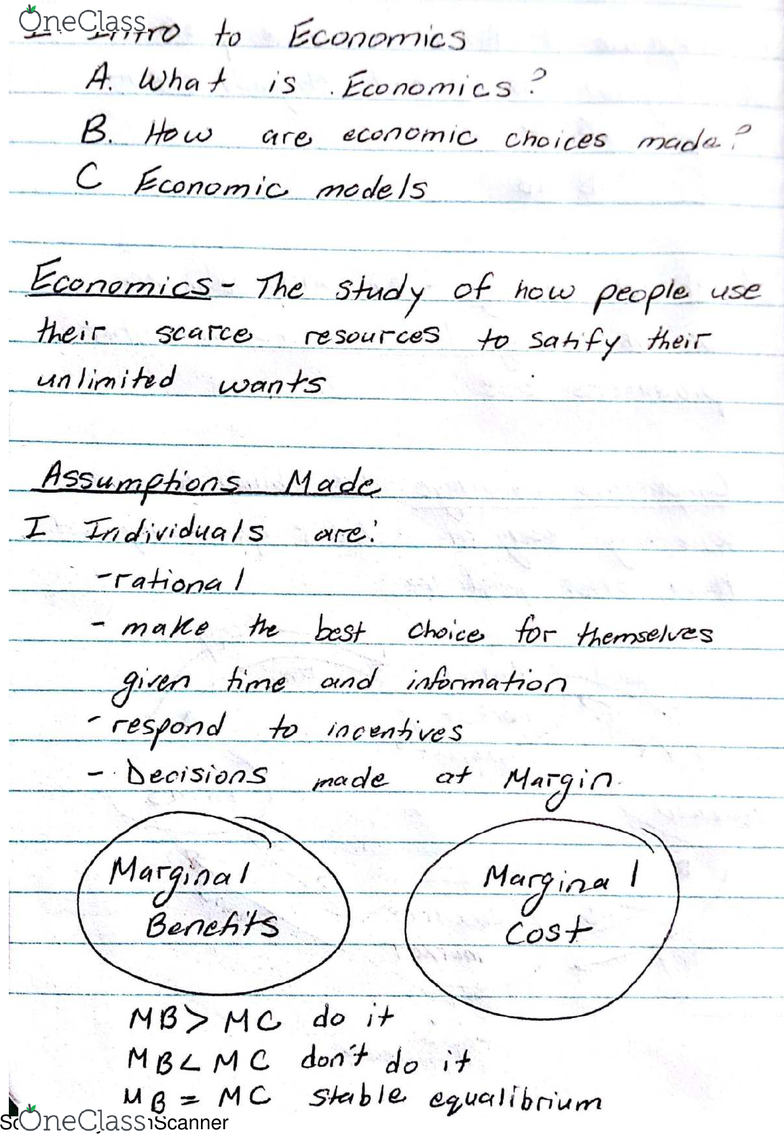 OneClass
I. Intro to Economics
A. What is Economics?
B. How are economic choices made?
C Economic models
Economics - The study of how people use
their scarce resources to satify their
unlimited wants
Assumptions Made
I Individuals are:
-rational
- make the best choice for themselves
given time and information
- respond to incentives
- Decisions made at Margin.
Marginal
Benefits
Marginal
Cost
MB > MC do it
MB < MC don't do it
MB = MC stable equalibrium
OneClass Scanner